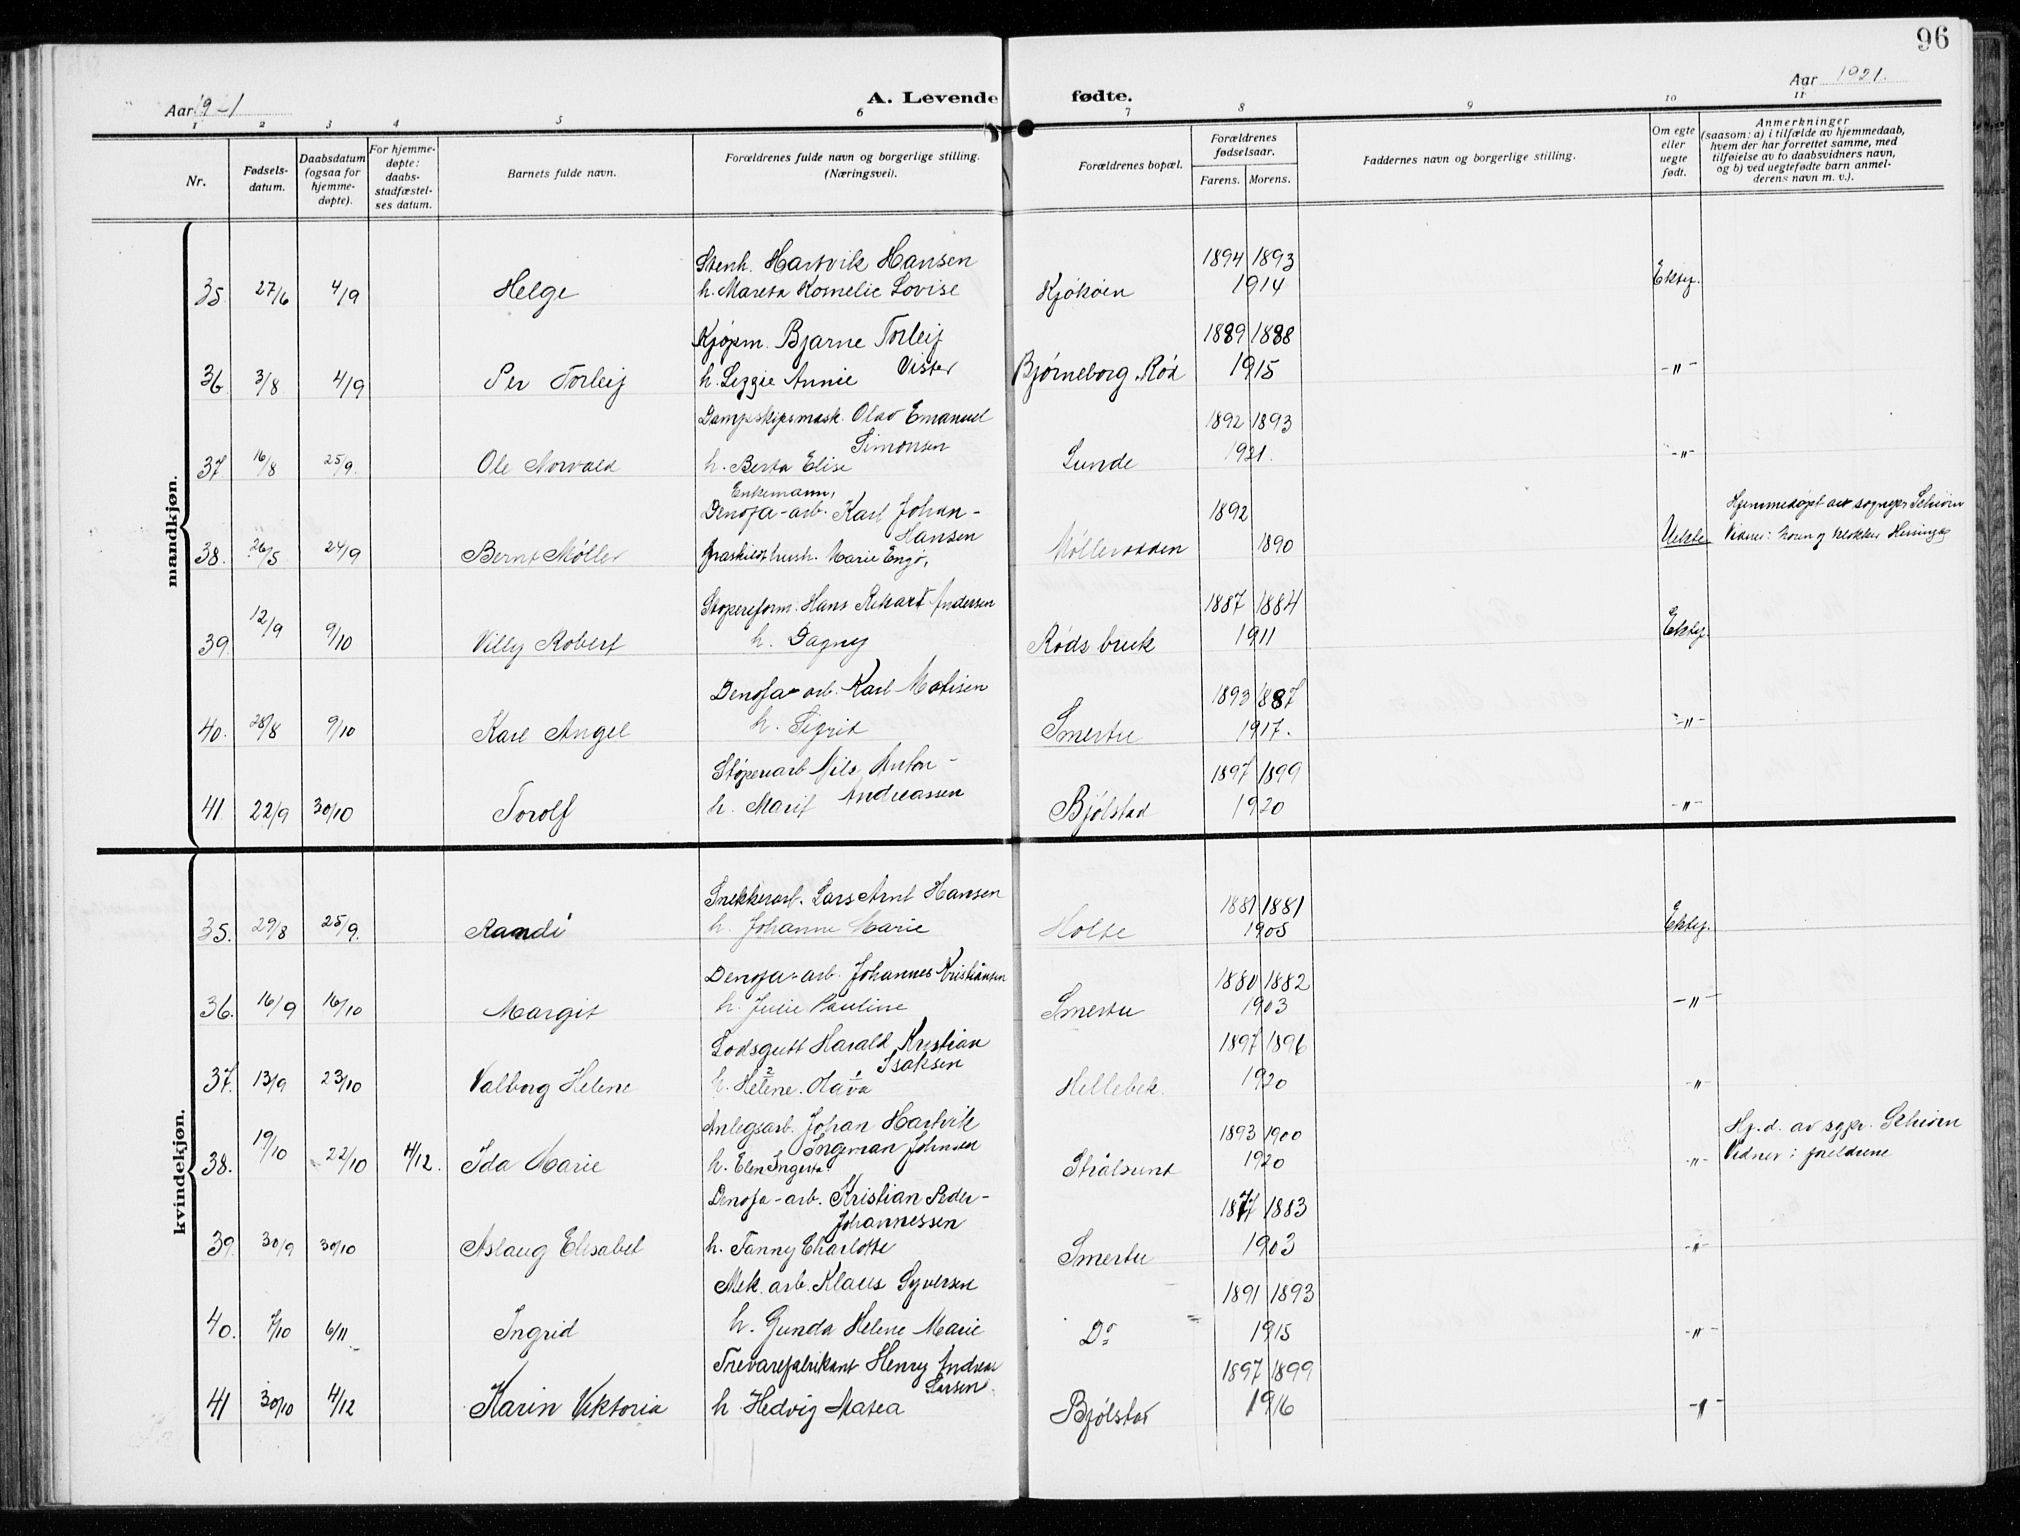 96
Aar 19-1
A. Levende fødte.
Aar 1921.
1 2 3 4 5 6 7 8 9 10 11
Nr.
Fødsels-
datum.
Daabsdatum
(ogsaa for
hjemme-
døpte).
For hjemme-
døpte:
daabs-
stadfæstel-
ses datum.
Barnets fulde navn.
Forældrenes fulde navn og borgerlige stilling.
(Næringsvei).
Forældrenes bopæl.
Forældrenes
fødselsaar.
Farens. Morens.
Faddernes navn og borgerlige stilling.
Om egte
eller
uegte
født.
Anmerkninger
(saasom: a) i tilfælde av hjemmedaab,
hvem der har forrettet samme, med
tilføielse av to daabsvidners navn,
og b) ved uegtefødte barn anmel-
derens navn m. v.).
mandkjøn.
Stenh. Hartvik Hansen 1894 1893
35 27/6 4/9 Helge h. Mareta Kornelie Lovise Kjøkøen 1914 Ektef.
Kjøpm. Bjarne Torleif 1889 1888
Vister
36 3/8 4/9 Per Torleif h. Lizzie Annie Bjørneborg, Rød 1915 -"-
Dampskipsmask. Olav Emanuel 1892 1893
Simonsen
37 16/8 25/9. Ole Norvald h. Berta Elise Lunde 1921. -"-
Enkemann,
Denofa-arb. Karl Johan - 1892
Hansen
38. 26/5 24/9 Bernt Møller fraskildt hush. Marie Engø, Mølleroden 1890 Uekte
Hjemmedøpt av sognepr. Schiøen
Vidner: moren og klokker
Hans Rikart Andersen 1887 1884
39. 12/9 9/10 Villy Robert h. Dagny Røds bruk 1911 Ektef.
Denofa-arb. Karl Matisen 1893 1887
40. 28/8 9/10 Karl Angel h. Sigrid Smertu 1917. -"-
Støperiarb Nils Anton - 1897 1899
Andreassen
41 22/9 30/10 Torolf h. Marit Bjølstad 1920 -"-
kvindekjøn.
Snekkerarb. Lars Arnt Hansen 1881 1881
35. 29/8 25/9. Randi h. Johanne Marie Holte 1905 Ektef.
Denofa-arb. Johannes Kristiansen 1880 1882
36. 16/9 16/10 Margit h. Julie Pauline Smertu 1903 -"-
Lodsgutt Harald Kristian 1897 1896
Isaksen
37. 13/9 23/10 Valborg Helene h. Helene 2 Olava 1 Hellebek. 1920 -"-
Anlegsarb. Johan Hartvik 1893 1900
Ingeman Johnsen
38. 19/10 22/10 4/12. Ida Marie h. Elen Ingerta Strålsunt 1920 -"-
Hj.d. av sgpr. Schiøen
Vidner: foreldrene
Denofa-arb. Kristian Peder- 1877 1883
Johannessen
39. 30/9 30/10 Aslaug Elisabet h. Fanny Charlotte Smertu 1903 -"-
Mek. arb. Klaus Syversen 1891 1893
40. 7/10 6/11 Ingrid h. Gunda Helene Marie Do 1915 -"-
Trevarefabrikant Henry Andreas 1897 1899
Larsen
41 30/10 4/12 Karin Viktoria h. Hedvig Matea Bjølstad 1916 -"-